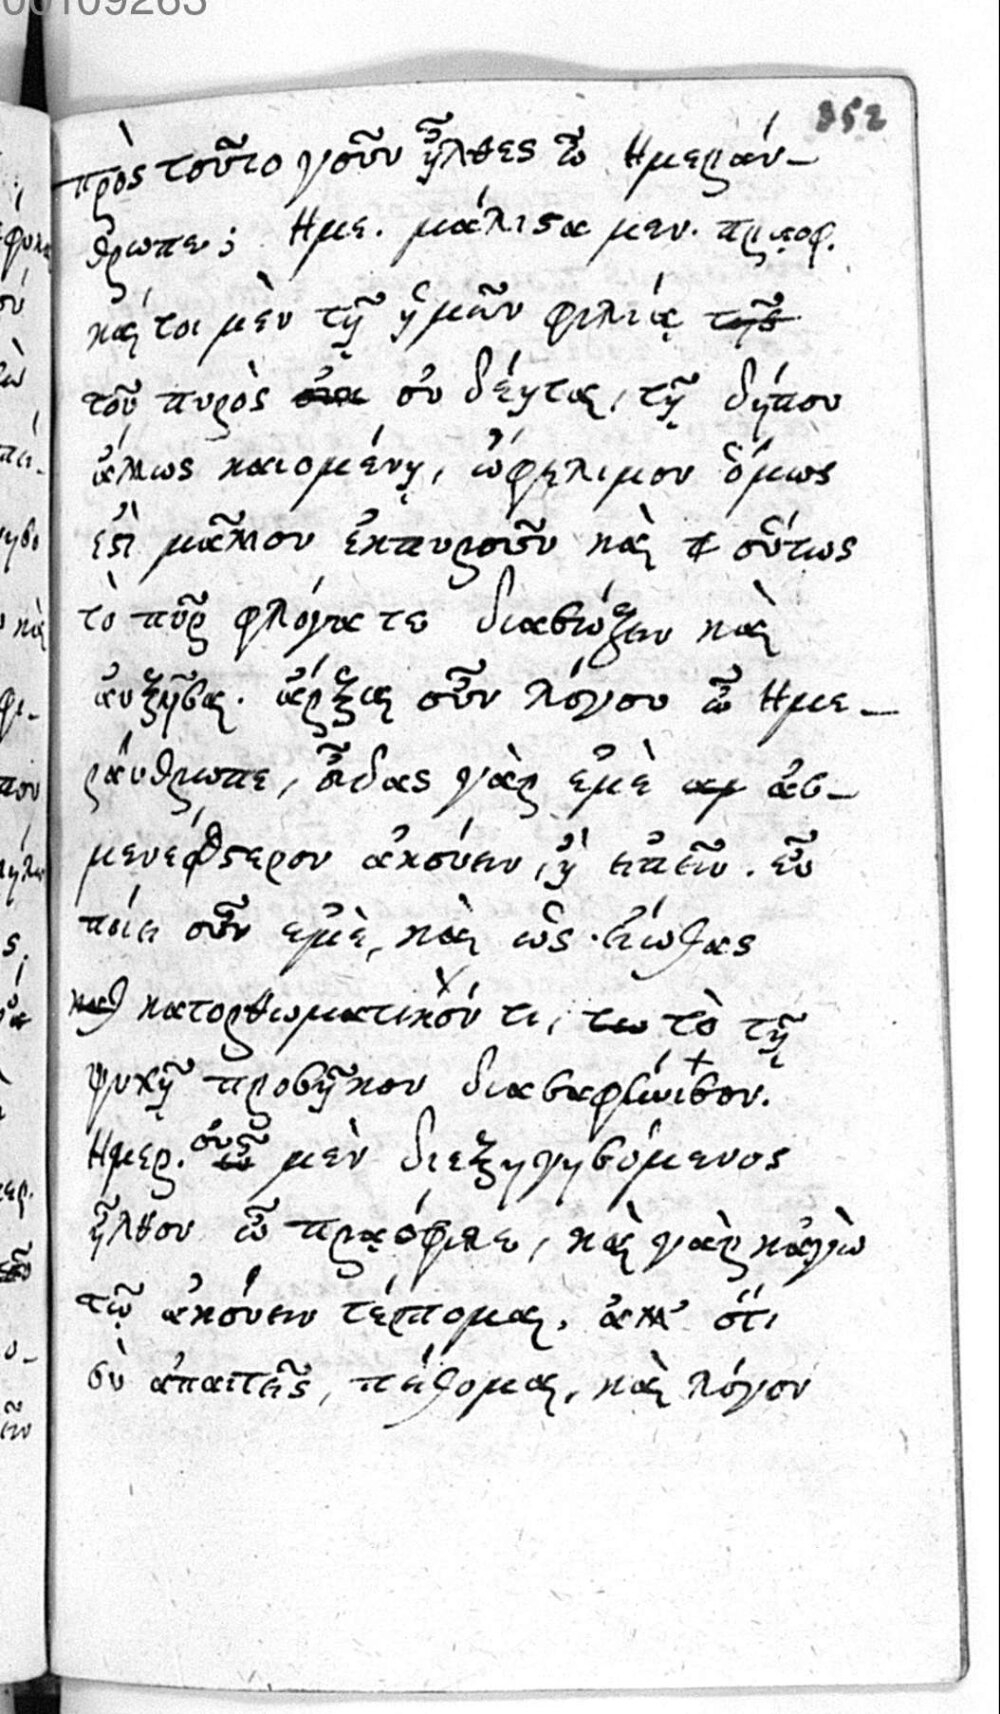 00109263
352
πρὸς τοῦτο γοῦν ἦλθες ὦ Ἡμεράν-
θρωπε; Ημε. μάλιστα μεν. πρᾳοφ.
καίτοι μὲν τῇ ἡμῶν φιλίᾳ
τοῦ πυρὸς οὐ δέηται, τῇ δήπου
ἄλλως καιομένῃ, ὠφέλιμον ὅμως
ἐστὶ μᾶλλον ἐκπυρσοῦν καὶ οὕτως
τὸ πῦρ φλόγα τε διασώζειν καὶ
αὐξῆσαι. ἄρξαι οὖν λόγου ὦ Ημε-
ράνθρωπε, οἶδας γὰρ ἐμὲ ἀσ-
μενέστερον ἀκούειν, ἢ εἰπεῖν. εὖ
ποίει οὖν ἐμὲ, καὶ ὡς εἴωθας
κατορθωματικόν τι, τὸ τῇ
ψυχῇ προσῆκον διασαφήνισον.
Ημερ. οὐ μὲν διεξηγησόμενος
ἦλθον ὦ πρᾳόφιλε, καὶ γὰρ κᾀγὼ
τῷ ἀκούειν τέρπομαι, ἀλλ' ὅτι
σὺ ἀπαιτεῖς, πείθομαι, καὶ λόγον